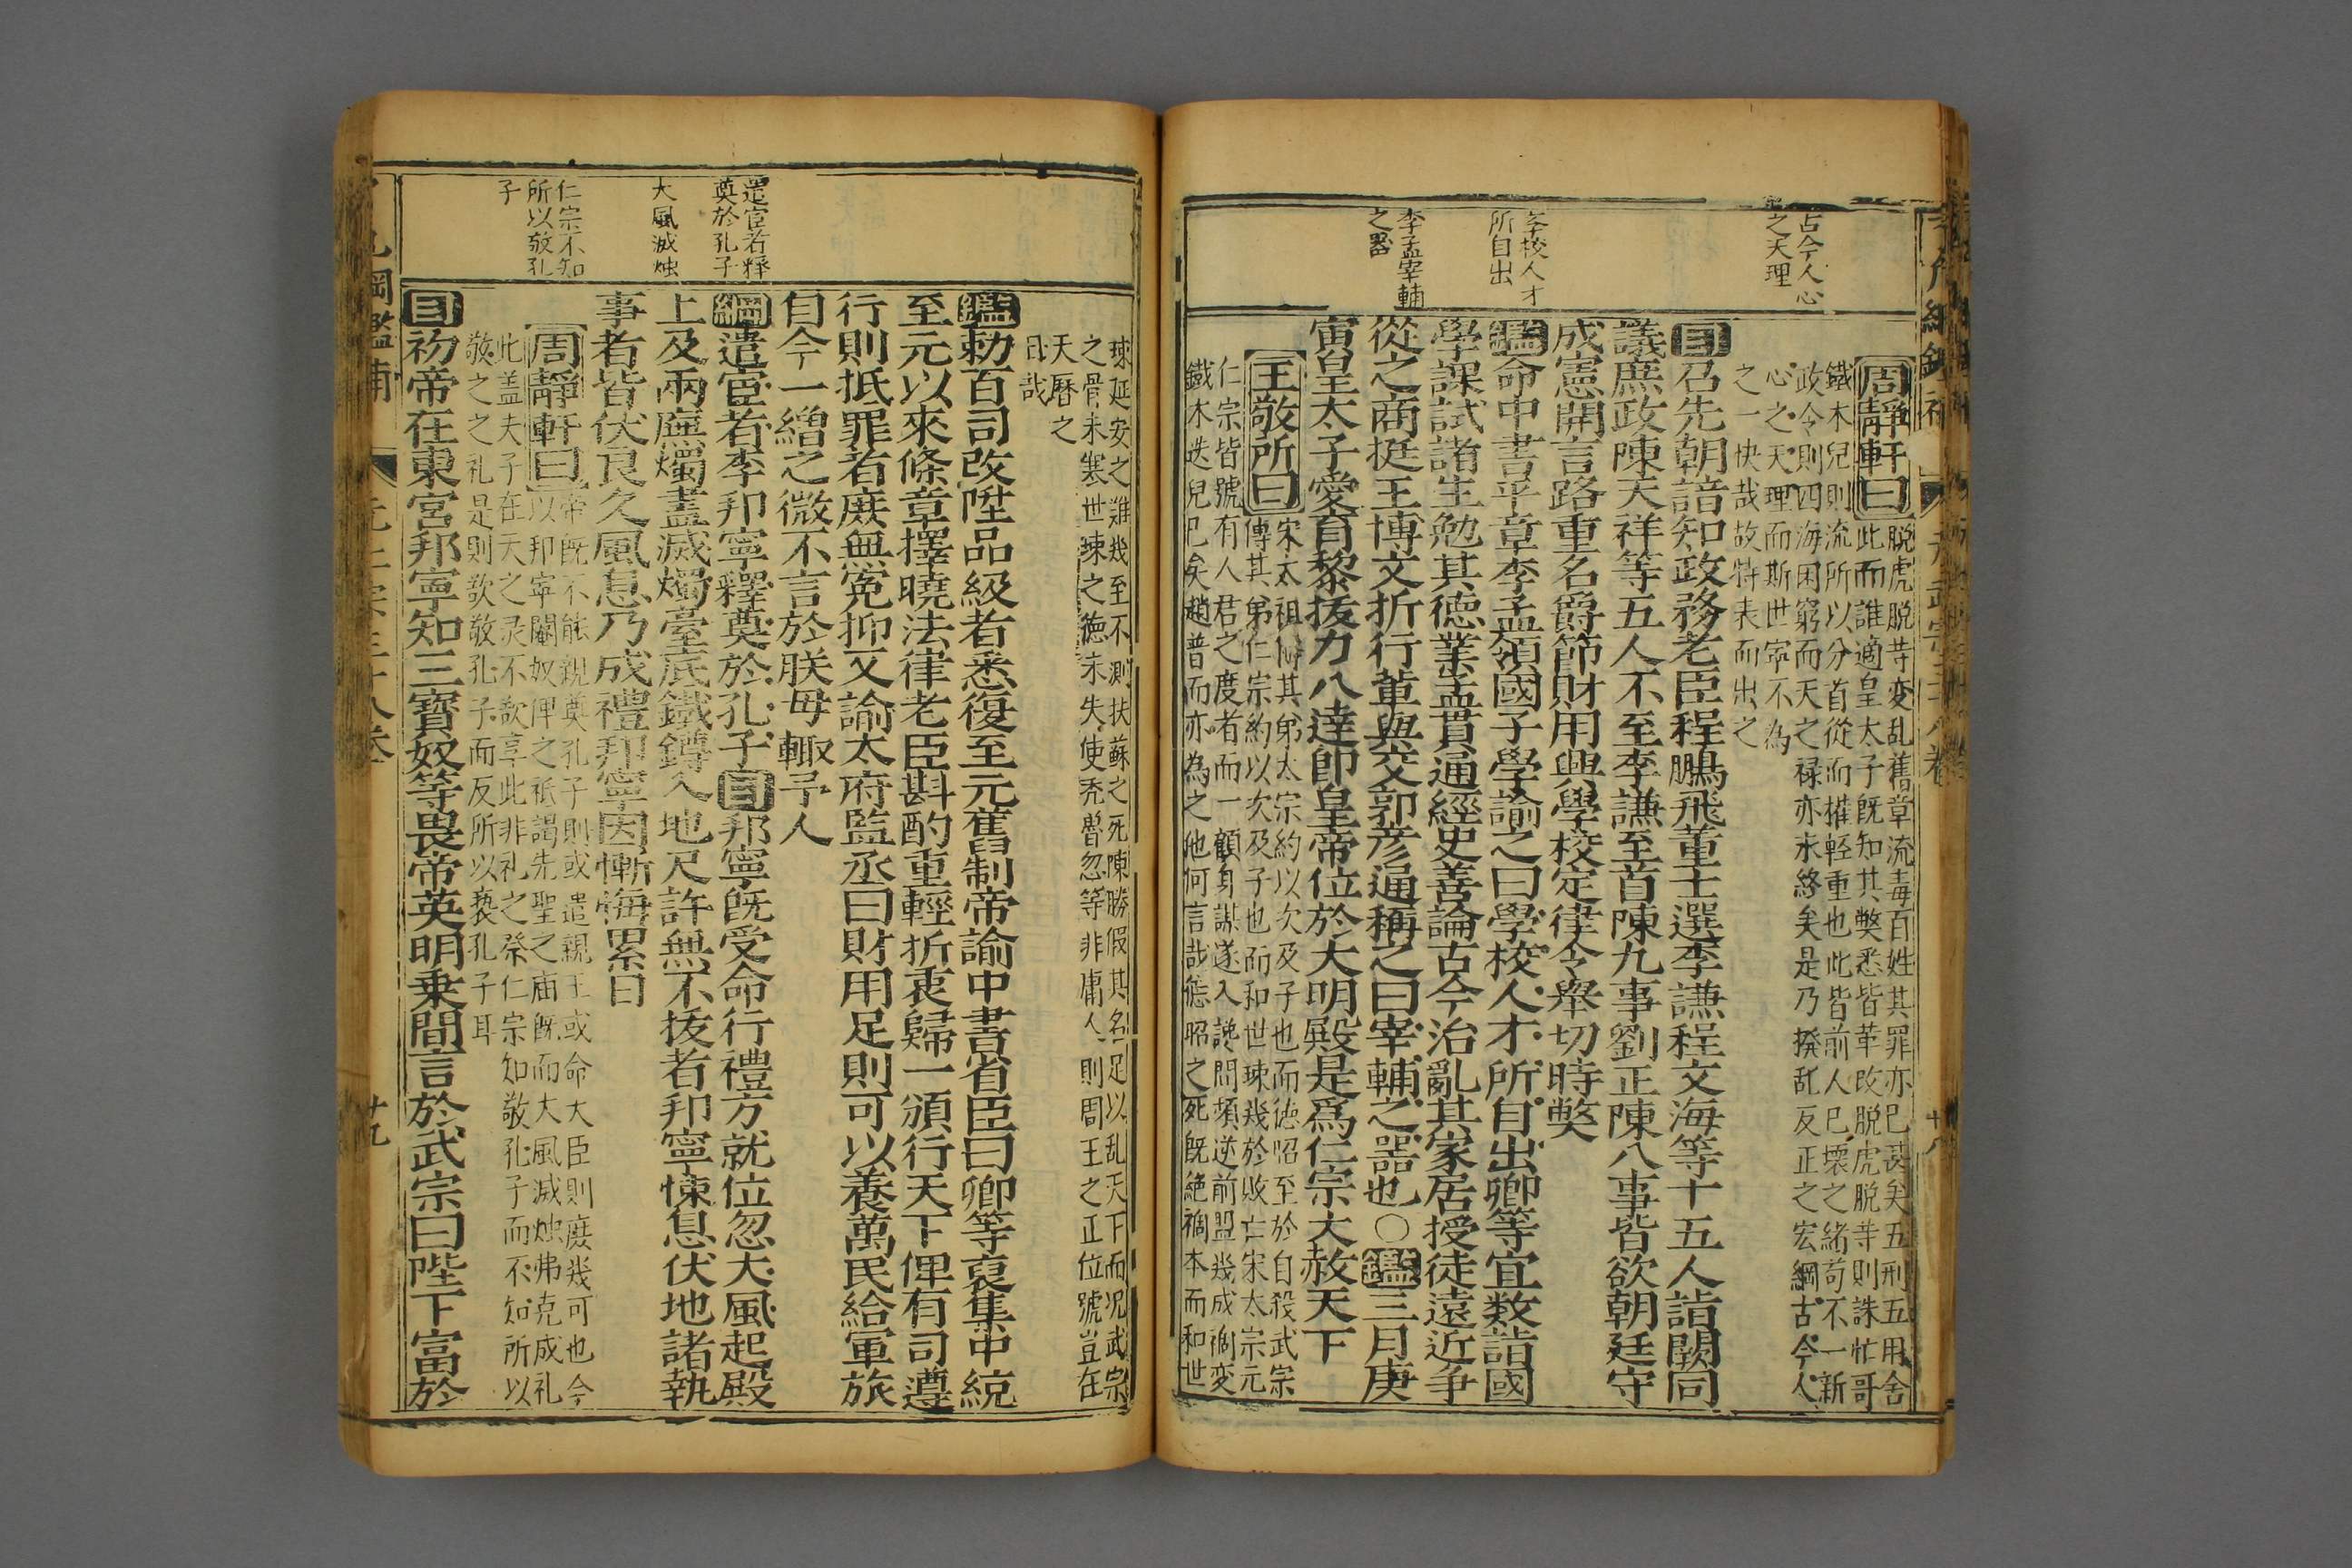 古今人心
之天理
李校人才
所自出
李孟宰輔
之器
周靜軒曰
脫虎脫等变乱舊章流毒百姓其罪亦已甚矣五刑五用舍
此而誰適皇太子既知其獘悉皆革改脫虎脫等則誅忙哥
鐵木兒則流所以分首從而權轻重也此皆前人已壞之緒苟不一新
政令則四海困窮而天之禄亦永終矣是乃撥乱反正之宏綱古今人
心之天理而斯世寧不為
之一快哉故特表而出之
目召先朝諳知政務老臣程鵬飛董士選李謙程文海等十五人詣闕同
議庶政陳天祥等五人不至李謙至首陳九事劉正陳八事皆欲朝廷守
成憲開言路重名爵節財用興學校定律令舉切時獘
鑑命中書平章李孟領國子學諭之曰學校人才所自出卿等宜数詣國
學課試諸生勉其德業孟貫通經史善論古今治亂其家居授徒遠近争
從之商挺王博文折行軰與交郭彦通稱之曰宰輔之噐也○鑑三月庚
寅皇太子愛育黎拔力八達即皇帝位於大明殿是爲仁宗大赦天下
王敬所曰
宋太祖傳其弟太宗約以次及子也而德昭至於自殺武宗
傳其弟仁宗約以次及子也而和世㻋幾於敗亡宋太宗元
仁宗皆號有人君之度者而一顧身謀遂入讒問頻逆前盟幾成禍变
鐵木迭兒已矣趙普而亦為之他何言哉德昭之死既絶禍本而和世
㻋延安之難幾至不測扶蘇之死陳勝假其名足以乱天下而况武宗
之骨未寒世㻋之德未失使禿魯忽等非庸人則周王之正位號豈在
天曆之
日哉
鑑勅百司改陞品級者悉復至元舊制帝諭中書省臣曰卿等裒集中統
至元以來條章擇曉法律老臣斟酌重輕折衷歸一頒行天下俾有司遵
行則抵罪者庶無寃抑又諭太府監丞曰財用足則可以養萬民給軍旅
自今一繒之微不言於朕毋輙予人
綱遣宦者李邦寧釋奠於孔子目邦寧既受命行禮方就位忽大風起殿
上及兩廡燭盡滅燭臺底鐵鐏入地尺許無不拔者邦寧悚息伏地諸執
事者皆伏良久風息乃成禮邦寧因慚悔累日
周靜軒曰
帝既不能親奠孔子則或遣親王或命大臣則庶幾可也今
以邦寧閹奴俾之祗謁先聖之庙既而大風滅烛弗克成礼
此盖夫子在天之灵不歆享此非礼之祭仁宗知敬孔子而不知所以
敬之之礼是則欲敬孔子而反所以亵孔子耳
目初帝在東宮邦寧知三寶奴等畏帝英明乗間言於武宗曰陛下富於
遣宦者释
奠於孔子
大風滅烛
仁宗不知
所以敬孔
子